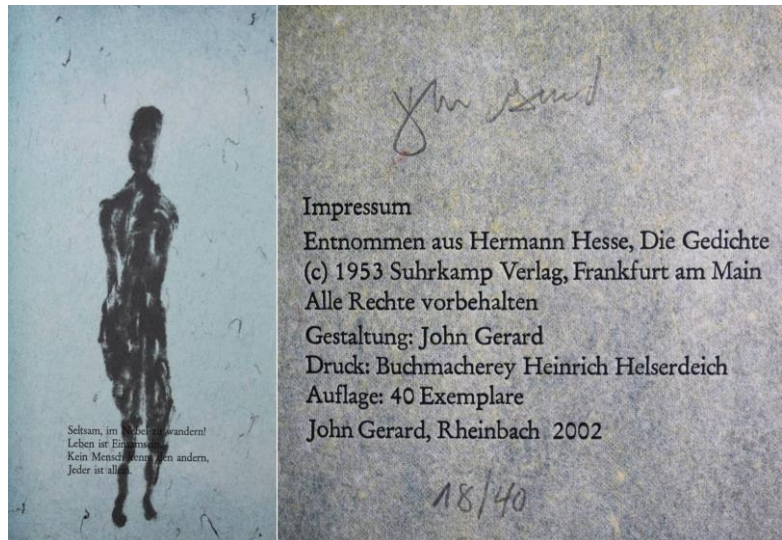 Seltsam, im Nebel zu wandern!
Leben ist Einsamsein.
Kein Mensch kennt den andern,
Jeder ist allein.
John Gerard
Impressum
Entnommen aus Hermann Hesse, Die Gedichte
(c) 1953 Suhrkamp Verlag, Frankfurt am Main
Alle Rechte vorbehalten
Gestaltung: John Gerard
Druck: Buchmacherey Heinrich Helserdeich
Auflage: 40 Exemplare
John Gerard, Rheinbach 2002
18/40